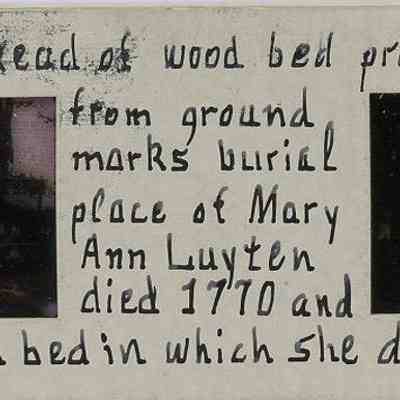 head of wood bed pr
from ground
marks burial
place of Mary
Ann Luyten
died 1770 and
bed in which she d